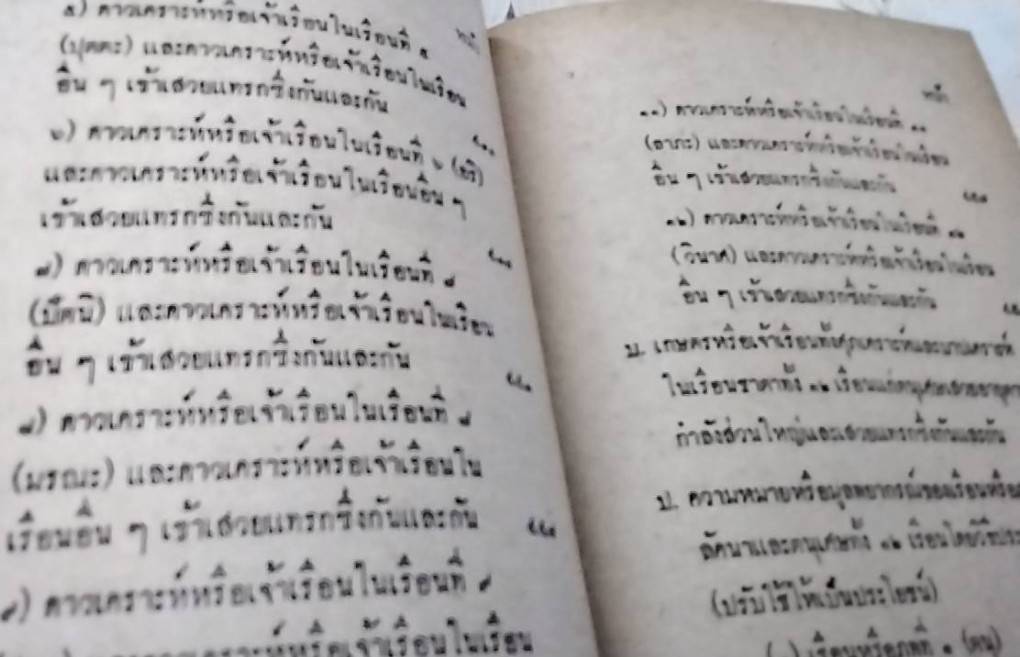 ๕) ดาวเคราะห์หรือเจ้าเรือนในเรือนที่ ๕
(ปุตตะ) และดาวเคราะห์หรือเจ้าเรือนในเรือน
อื่น ๆ เข้าเสวยแทรกซึ่งกันและกัน
๖) ดาวเคราะห์หรือเจ้าเรือนในเรือนที่ ๖ (อริ)
และดาวเคราะห์หรือเจ้าเรือนในเรือนอื่น ๆ
เข้าเสวยแทรกซึ่งกันและกัน
๗) ดาวเคราะห์หรือเจ้าเรือนในเรือนที่ ๗
(ปัตนิ) และดาวเคราะห์หรือเจ้าเรือนในเรือน
อื่น ๆ เข้าเสวยแทรกซึ่งกันและกัน
๘) ดาวเคราะห์หรือเจ้าเรือนในเรือนที่ ๘
(มรณะ) และดาวเคราะห์หรือเจ้าเรือนใน
เรือนอื่น ๆ เข้าเสวยแทรกซึ่งกันและกัน
๙) ดาวเคราะห์หรือเจ้าเรือนในเรือนที่ ๙
และดาวเคราะห์หรือเจ้าเรือนในเรือน
หน้า
๑๑) ดาวเคราะห์หรือเจ้าเรือนในเรือนที่ ๑๑
(ลาภะ) และดาวเคราะห์หรือเจ้าเรือนในเรือน
อื่น ๆ เข้าเสวยแทรกซึ่งกันและกัน
๑๒) ดาวเคราะห์หรือเจ้าเรือนในเรือนที่ ๑๒
(วินาศ) และดาวเคราะห์หรือเจ้าเรือนในเรือน
อื่น ๆ เข้าเสวยแทรกซึ่งกันและกัน
บ. เกษตรหรือเจ้าเรือนทั้งศุภเคราะห์และบาปเคราะห์
ในเรือนชาตาทั้ง ๑๒ เรือนแก่ตนุเศษเสวยอายุ
กำลังส่วนใหญ่และเสวยแทรกซึ่งกันและกัน
ป. ความหมายหรือมูลพยากรณ์ของเรือนหรือ
ลัคนาและตนุเศษทั้ง ๑๒ เรือนโดยวิธี
(ปรับใช้ให้เป็นประโยชน์)
(๑) เรือนหรือภพที่ ๑ (ตนุ)